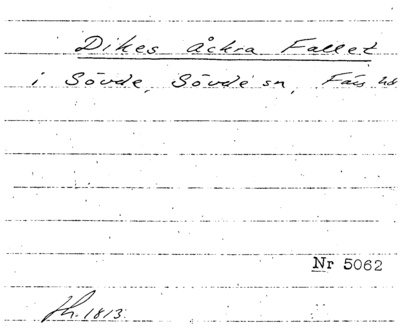 Dikes Åckra Fallet
i Sövde, Sövde sn, Färs hd
Nr 5062
fh. 1813